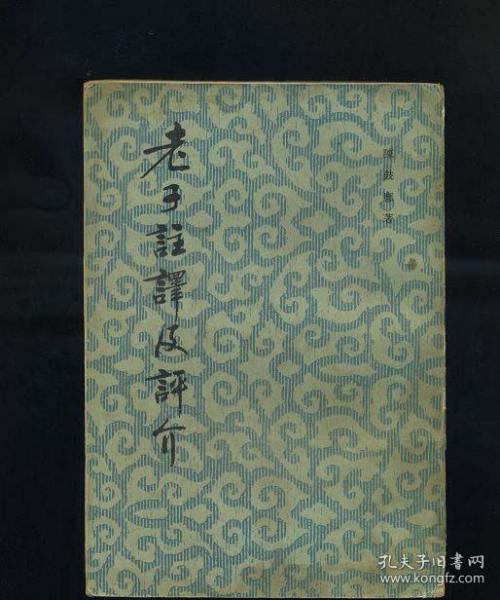 老子註譯及評介
陳鼓應著
孔夫子旧书网
www.kongfz.com